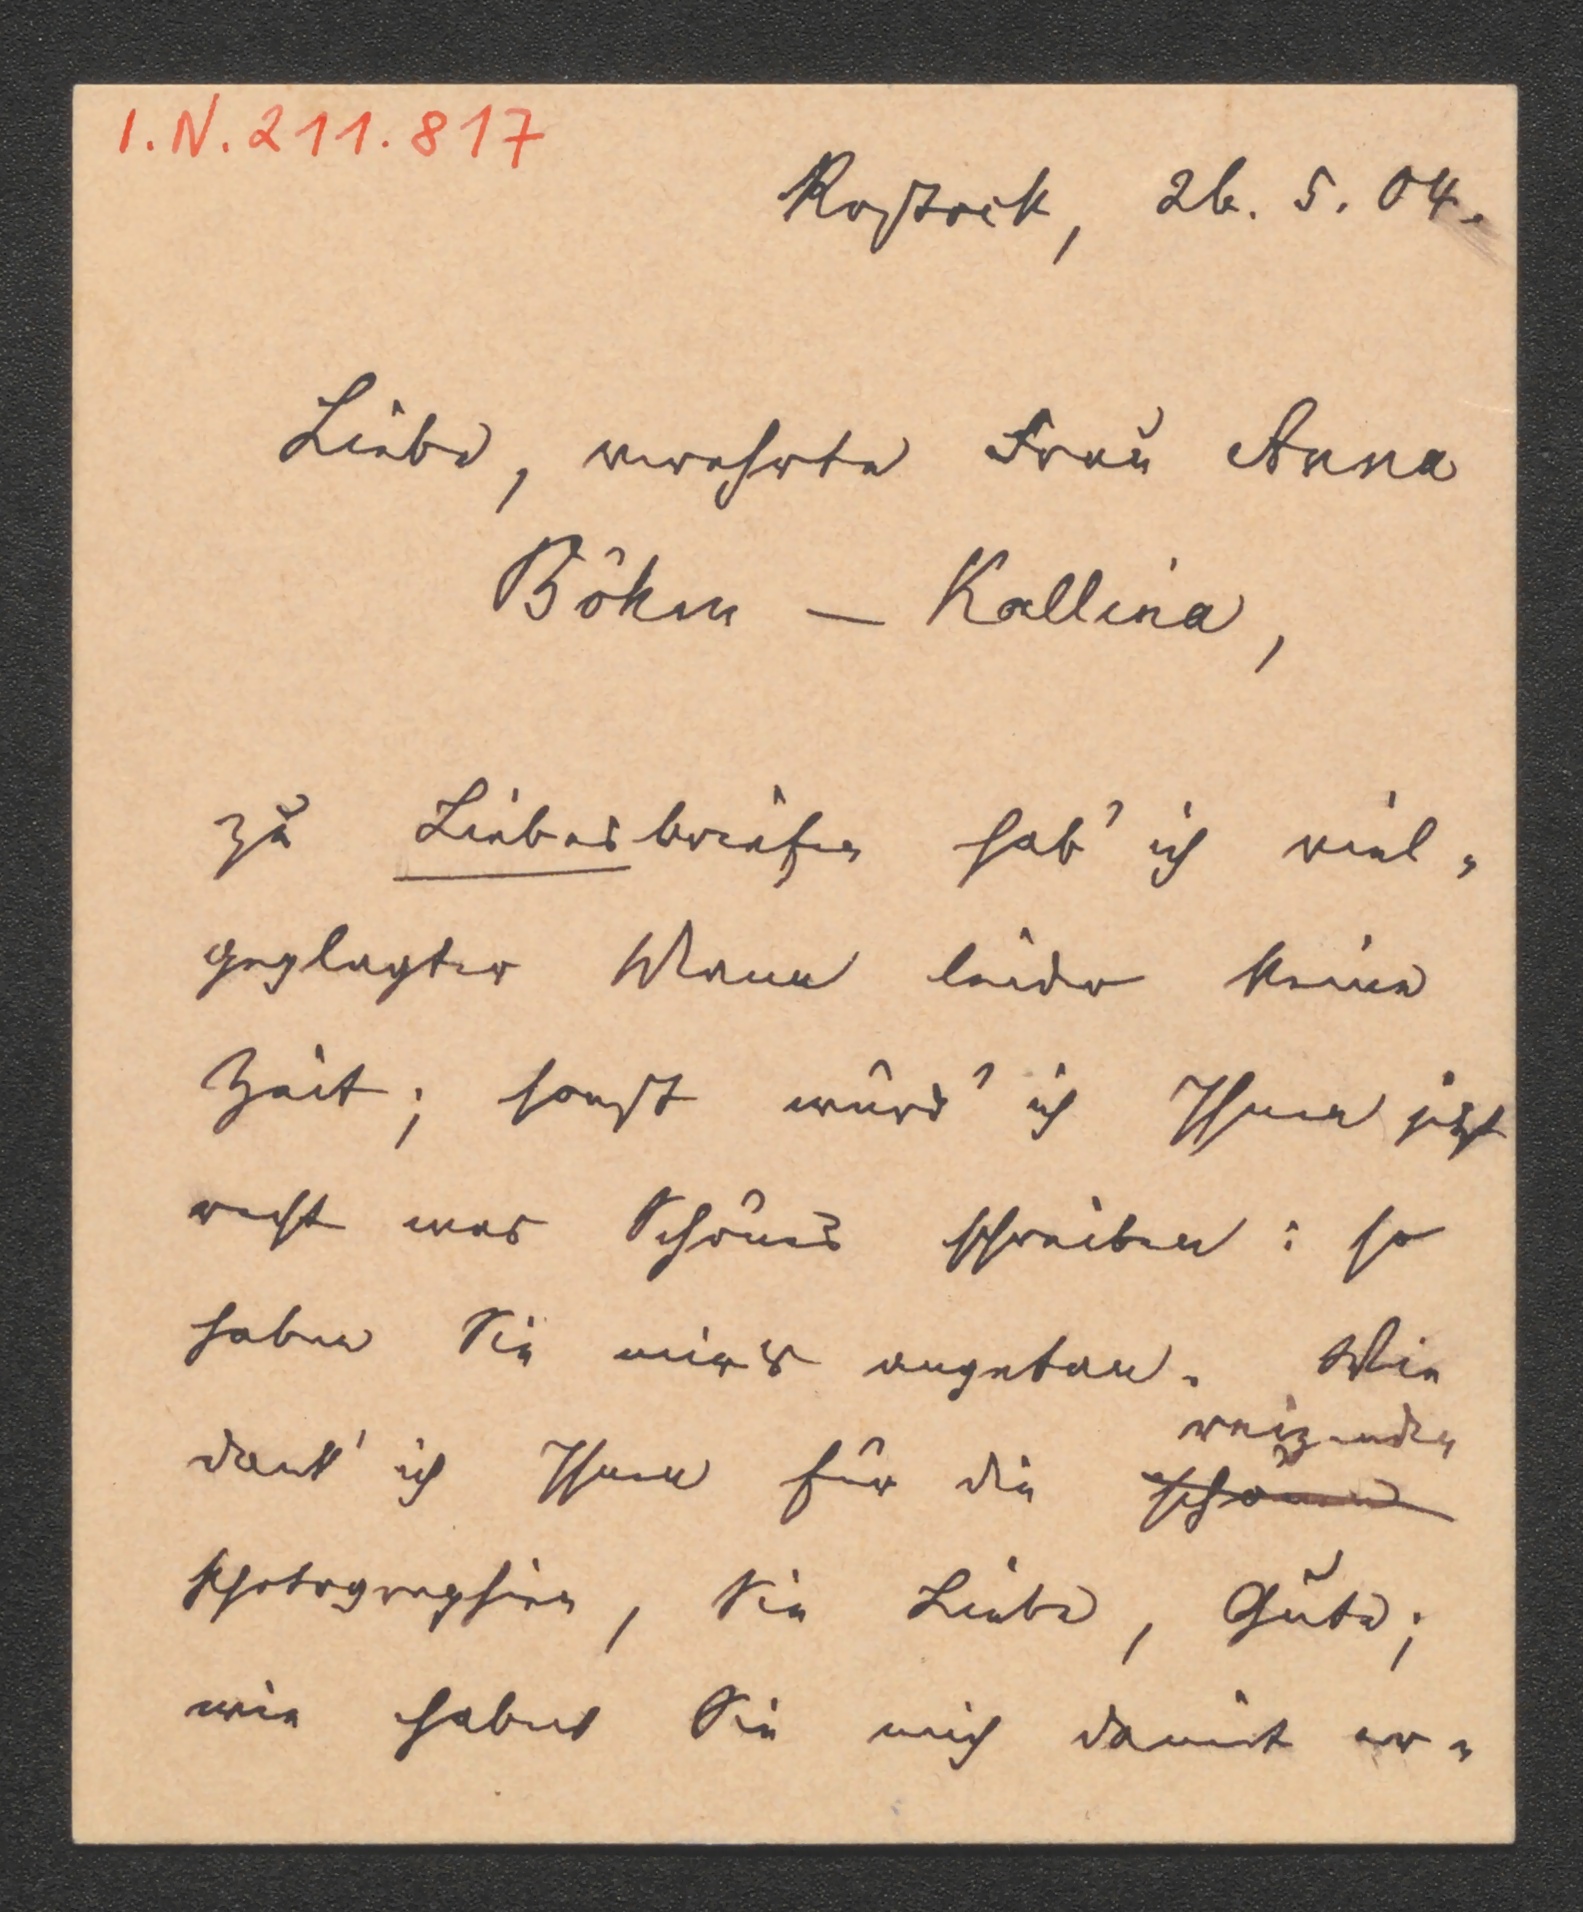 I.N.211.817
Rostock, 26. 5. 04.
Liebe, verehrte Frau Anna
Böhm – Kallina,
zu Liebesbriefen hab' ich viel-
geplagter Mann leider keine
Zeit; sonst würd' ich Ihnen jetzt
recht was Schönes schreiben: so
haben Sie mir's angetan. Wie
reizenden
dank' ich Ihnen für die schönen
Photographien, Sie Liebe, Gute;
wie haben Sie mich damit er-